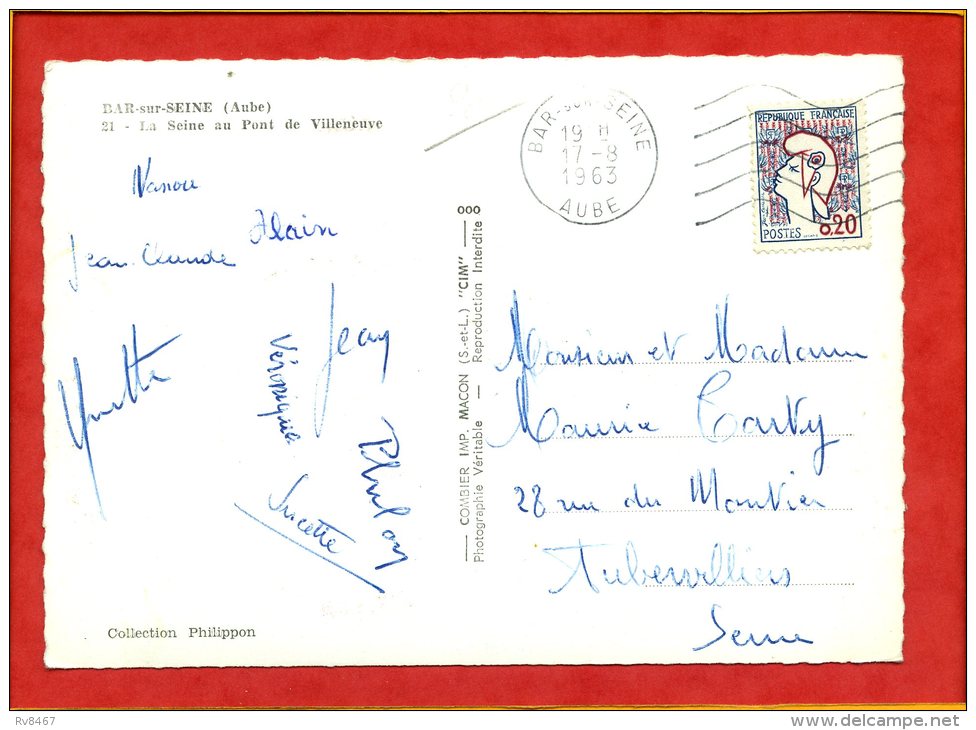 BAR-sur-SEINE (Aube)
21 - La Seine au Pont de Villeneuve
Nanou
Alain
Jean-Claude
Jean
Véronique
Yvette
Sucette
COMBIER IMP. MACON (S.-et-L.) "CIM" ooo
Photographie Véritable — Reproduction Interdite
BAR-sur-SEINE
19 H
17-8
1963
AUBE
REPUBLIQUE FRANÇAISE
POSTES
0,20
Monsieur et Madame
Maurice Tarty
28 rue du Moutier
Aubervilliers
Seine
Collection Philippon
Rv8467
delcampe.net